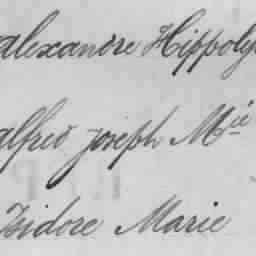 alexandre Hippoly
alfred joseph Mie
Isidore Marie